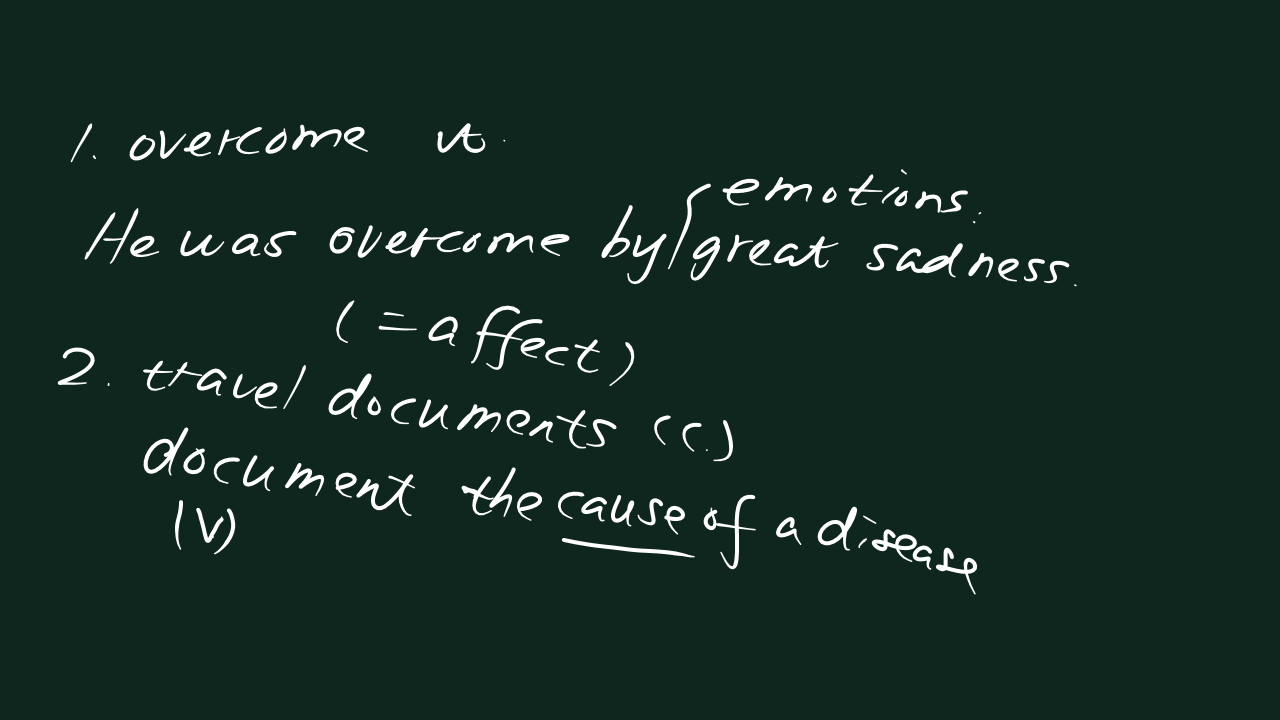 1. overcome vt.
He was overcome by { emotions.
great sadness.
(=affect)
2. travel documents (C.)
document the cause of a disease
(V)